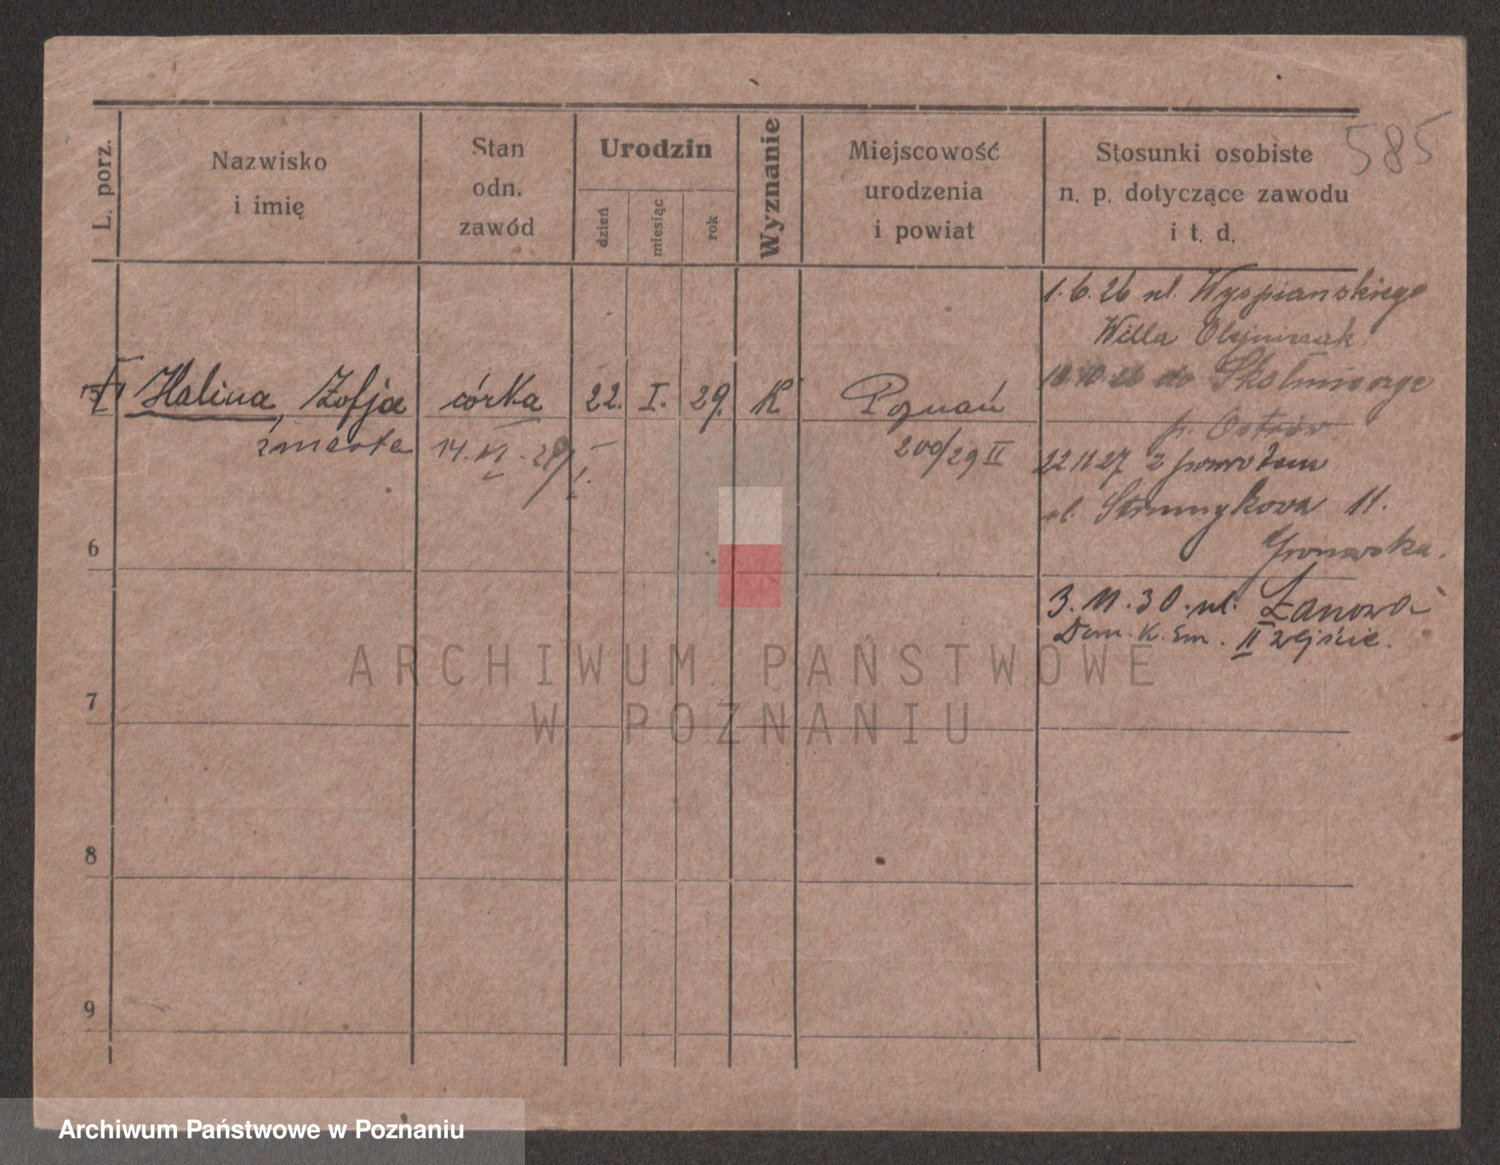 585
L. porz.
Nazwisko
i imię
Stan
odn.
zawód
Urodzin
dzień
miesiąc
rok
Wyznanie
Miejscowość
urodzenia
i powiat
Stosunki osobiste
n. p. dotyczące zawodu
i t. d.
1.6.26 ul. Wyspiańskiego
Willa
Halina, Zofja córka 22. I. 29. K Poznań
do
zmarła 14. 200/29 II
p. Ostrów
22 11 27 z powrotem
ul. Strumykowa 11.
6
3.11.30. ul. Łanowa
Dom. K. Em. II wejście.
7
8
9
ARCHIWUM PAŃSTWOWE
W POZNANIU
Archiwum Państwowe w Poznaniu